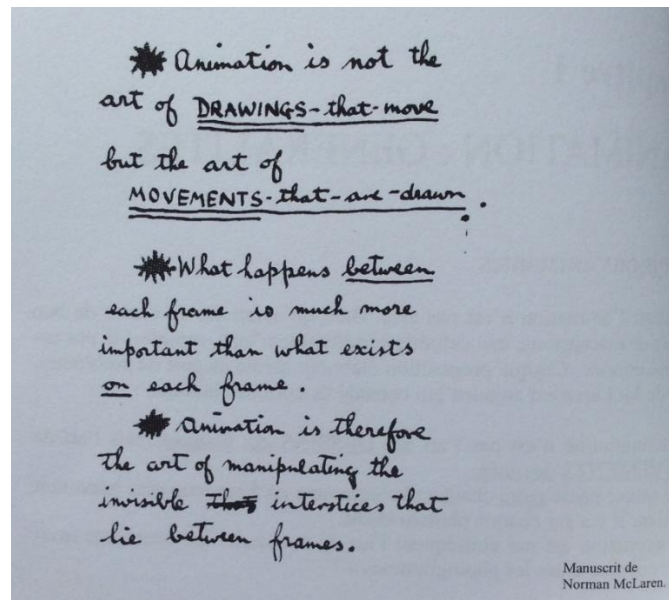 Animation is not the
art of DRAWINGS-that-move
but the art of
MOVEMENTS-that-are-drawn.
What happens between
each frame is much more
important than what exists
on each frame.
Animation is therefore
the art of manipulating the
invisible interstices that
lie between frames.
Manuscrit de
Norman McLaren.